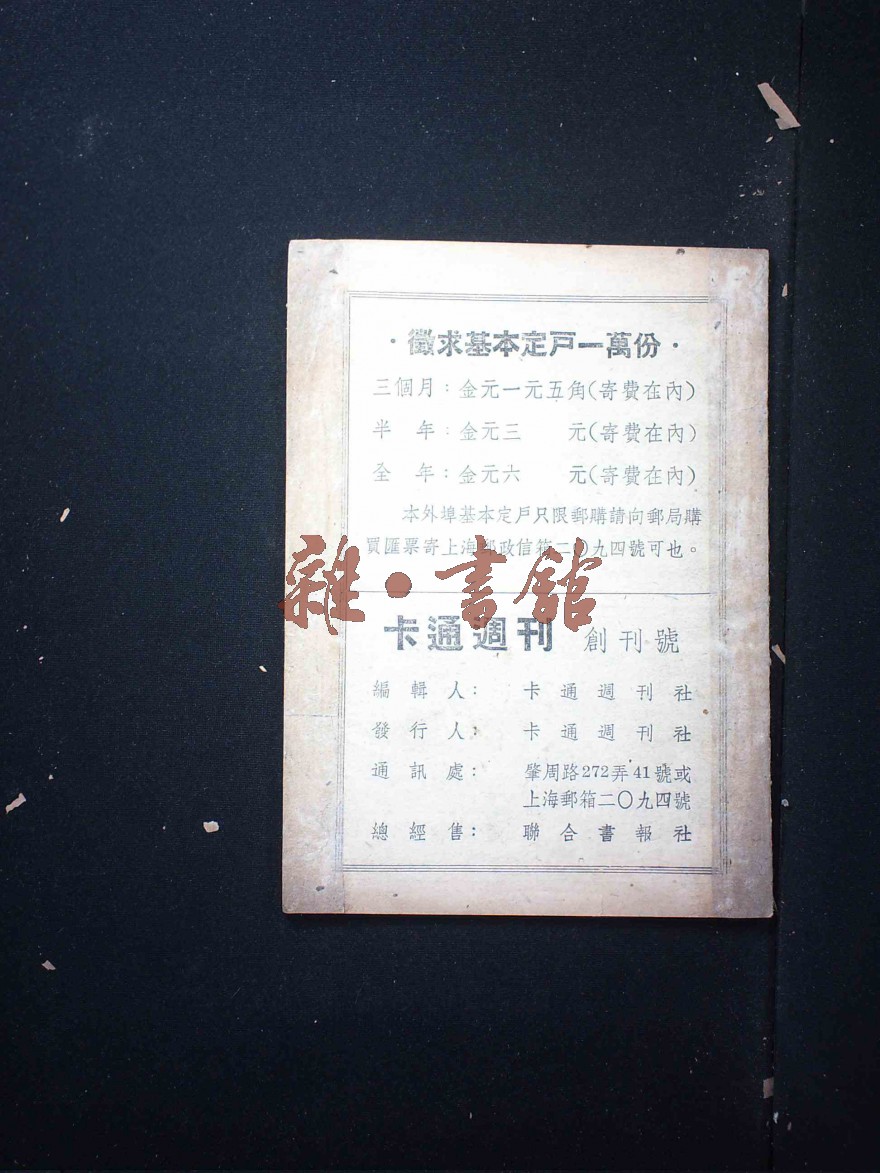 ·徵求基本定戸一萬份·
三個月：金元一元五角(寄費在內)
半　年：金元三　元(寄費在內)
全　年：金元六　元(寄費在內)
本外埠基本定戶只限郵購請向郵局購
買匯票寄上海郵政信箱二〇九四號可也。
雜·書館
卡通週刊 創刊號
編輯人：卡通週刊社
發行人：卡通週刊社
通訊處：肇周路272弄41號或
上海郵箱二〇九四號
總經售：聯合書報社